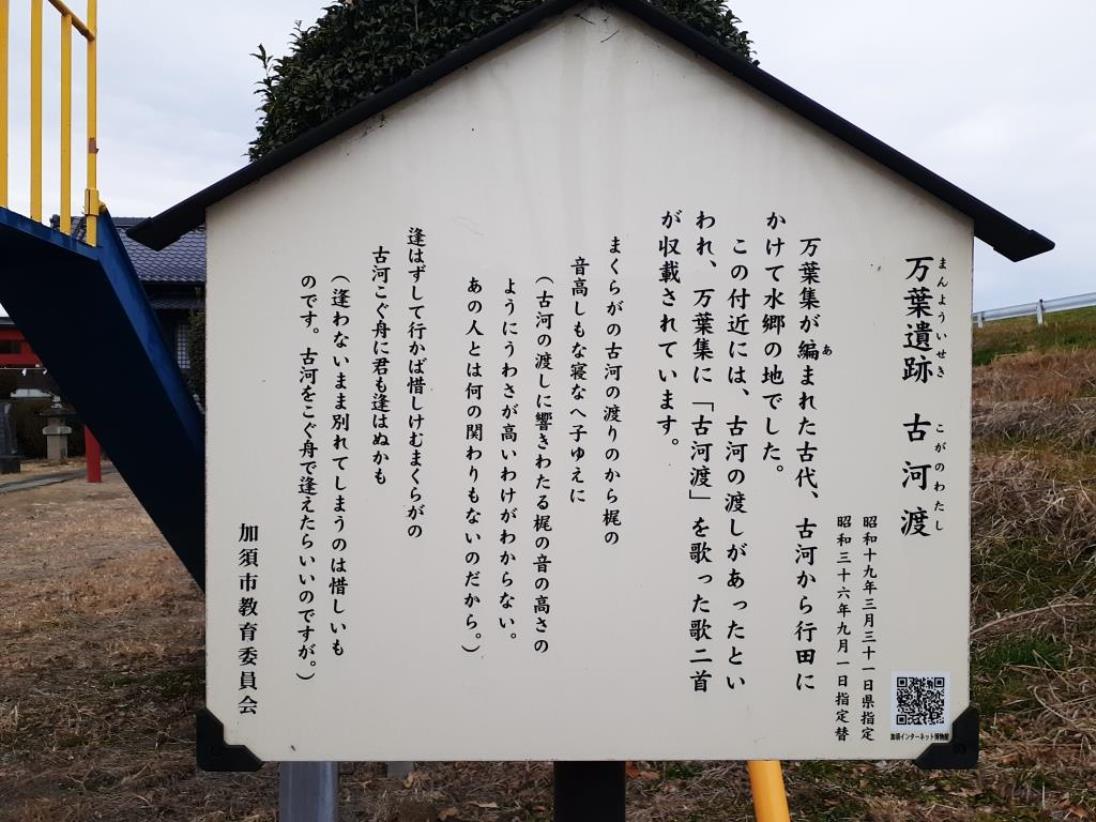 万葉遺跡　古河渡
まんよういせき　こがのわたし
昭和十九年三月三十一日県指定
昭和三十六年九月一日指定替
万葉集が編まれた古代、古河から行田に
あ
かけて水郷の地でした。
この付近には、古河の渡しがあったとい
われ、万葉集に「古河渡」を歌った歌二首
が収載されています。
まくらがの古河の渡りのから梶の
音高しもな寝なへ子ゆえに
（古河の渡しに響きわたる梶の音の高さの
ようにうわさが高いわけがわからない。
あの人とは何の関わりもないのだから。）
逢はずして行かば惜しけむまくらがの
古河こぐ舟に君も逢はぬかも
（逢わないまま別れてしまうのは惜しいも
のです。古河をこぐ舟で逢えたらいいのですが。）
加須市教育委員会
加須インターネット博物館